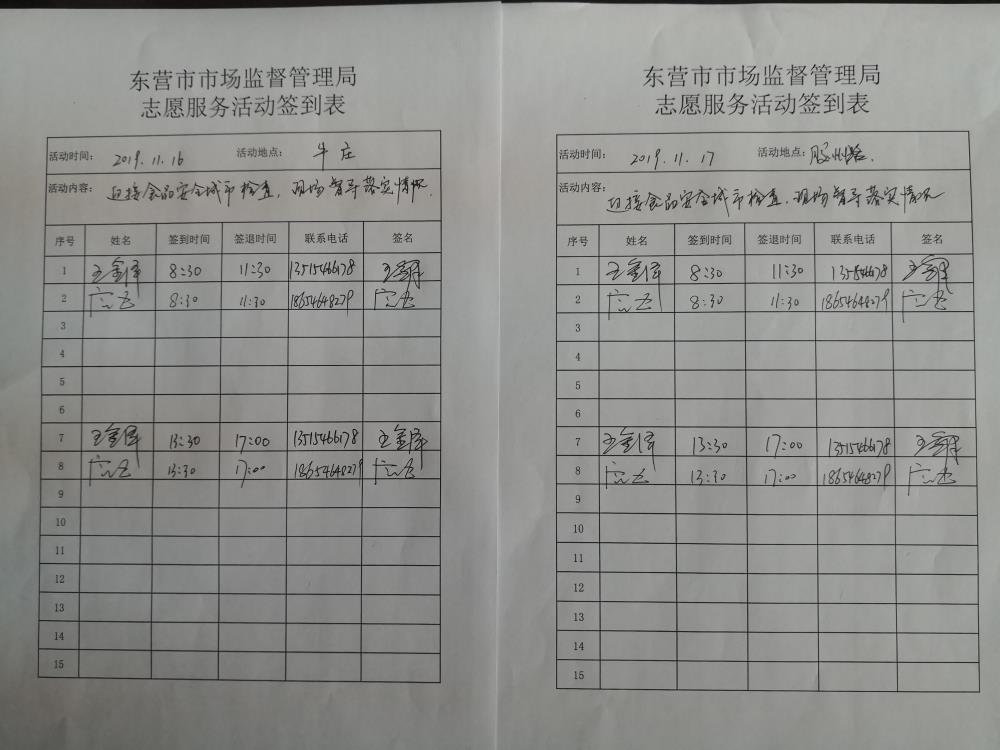 东营市市场监督管理局
志愿服务活动签到表
活动时间： 2019.11.16 活动地点： 牛庄
活动内容： 迎接食品安全城市检查，现场督导落实情况.
序号 姓名 签到时间 签退时间 联系电话 签名
1 8:30 11:30 13515466178
2 8:30 11:30 18654648279
3
4
5
6
7 13:30 17:00 13515466178
8 13:30 17:00 18654648279
9
10
11
12
13
14
15
东营市市场监督管理局
志愿服务活动签到表
活动时间： 2019.11.17 活动地点： 胶州路.
活动内容： 迎接食品安全城市检查，现场督导落实情况
序号 姓名 签到时间 签退时间 联系电话 签名
1 8:30 11:30 13515466178
2 8:30 11:30 18654648279
3
4
5
6
7 13:30 17:00 13515466178
8 13:30 17:00 18654648279
9
10
11
12
13
14
15